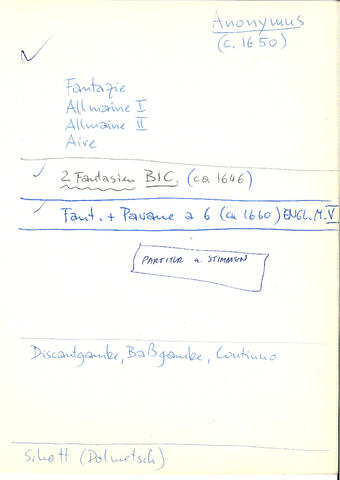 Anonymus
(c. 1650)
Fantazie
Allmaine I
Allmaine II
Aire
2 Fantasien BIC. (ca 1646)
Fant. + Pavane a 6 (ca 1660) ENGL. M. V
PARTITUR u. STIMMEN
Discantgambe, Baßgambe, Continuo
Schott (Dolmetsch)